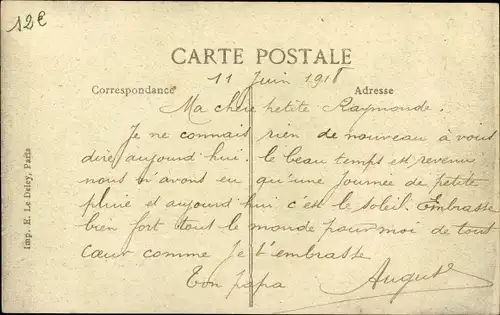 12€
CARTE POSTALE
11 Juin 1918
Correspondance
Adresse
Ma chère petite Raymonde.
Je ne connais rien de nouveau à vous
dire aujourd'hui. le beau temps est revenu
nous n'avons eu qu'une Journée de petite
pluie et aujourd'hui c'est le soleil. Embrasse
bien fort tout le monde pour moi de tout
Cœur comme Je t'embrasse
Ton papa
Auguste
Imp. E. Le Deley, Paris